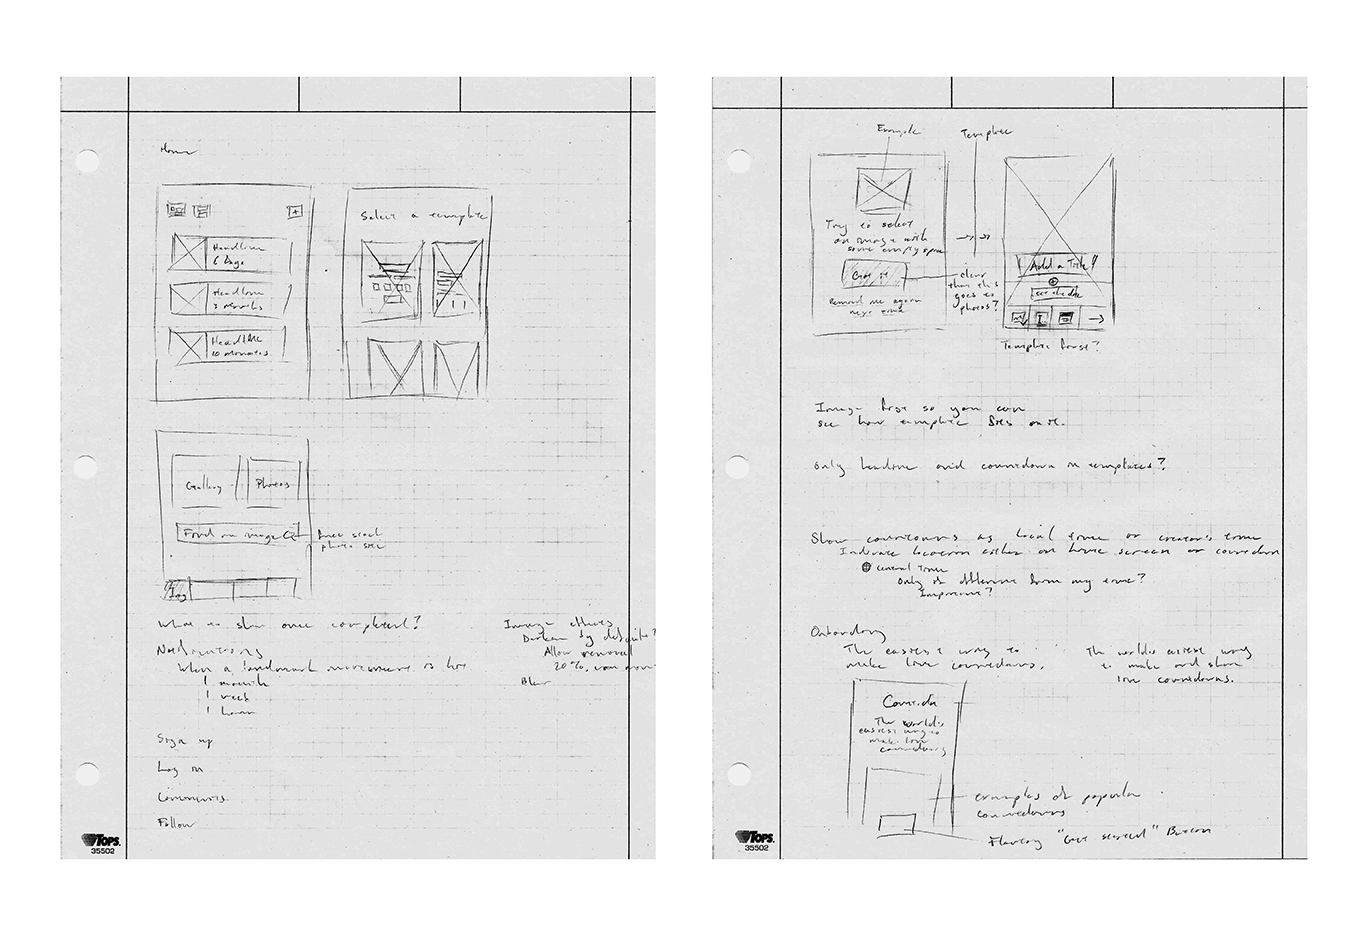 Home
Select a template
Headline
6 Days
Headline
2 months
Headline
10 minutes
Gallery
Photos
Find an image
Free stock
photo site
Img
What to show once completed?
Notifications
When a landmark movement is hit
1 month
1 week
1 hour
Sign up
Log in
Comments
Follow
Image effects
Darken by default?
Allow removal
20%,
Blur
TOPS
35502
Example
Template
Try to select
an image with
some empty space
Got it
Remind me again
next time
clear
that this
goes to
photos?
Add a Title
Set the date
Template first?
Image first so you can
see how template fits on it.
Only headline and countdown on templates?
Show countdowns as local time or creator's time
Indicate location either on home screen or countdown
central time
Only if different from my time?
Improve?
Onboarding
The easiest way to
make live countdowns.
The world's easiest way
to make and share
live countdowns.
The world's
easiest way to
make live
countdowns
examples of popular
countdowns
Floating "Get started" Button
TOPS
35502